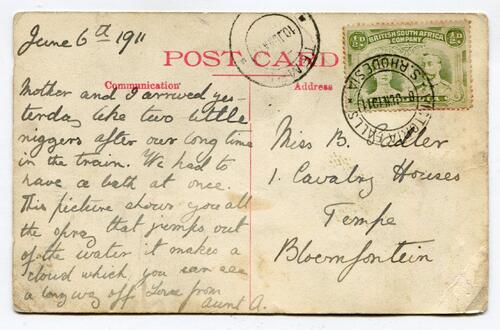 June 6th 1911
POST CARD
Communication
Address
BRITISH SOUTH AFRICA
COMPANY
½d
½d
VICTORIA FALLS
S. RHODESIA
TEMPE
Mother and I arrived yes-
terday like two little
niggers after our long time
in the train. We had to
have a bath at once.
This picture shows you all
the spray that jumps out
of the water it makes a
cloud which you can see
a long way off Love from
Aunt A.
Miss B.
1. Cavalry Houses
Tempe
Bloemfontein